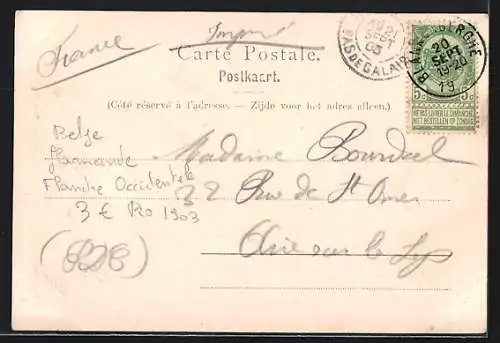 France
Imprimé
Carte Postale.
Postkaart.
(Côté réservé à l'adresse. — Zijde voor het adres alleen.)
BLANKENBERGHE
20
SEPT
19-20
79
21
SEPT
PAS DE CALAIS
5c 5c
NE PAS LIVRER LE DIMANCHE
NIET BESTELLEN OP ZONDAG
Madame Bourdal
32 Rue de St Omer
Aire sur la Lys
Belge
flamande
Flandre Occidentale
3 € Ro 1903
(PDC)